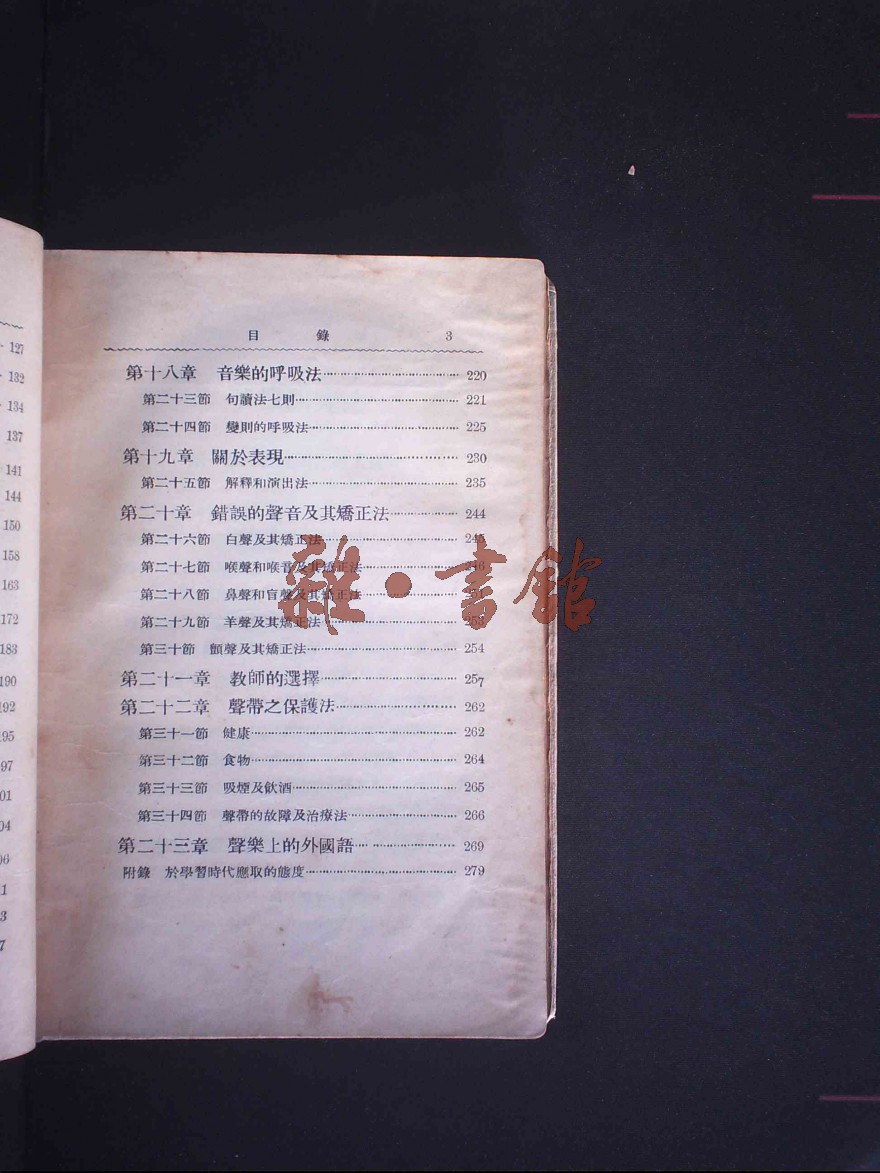 127
132
134
137
141
144
150
158
163
172
183
190
192
195
97
01
04
06
1
3
7
目 錄 3
第十八章 音樂的呼吸法 220
第二十三節 句讀法七則 221
第二十四節 變則的呼吸法 225
第十九章 關於表現 230
第二十五節 解釋和演出法 235
第二十章 錯誤的聲音及其矯正法 244
第二十六節 白聲及其矯正法 245
第二十七節 喉聲和喉音及其矯正法 246
第二十八節 鼻聲和盲聲及其矯正法 251
第二十九節 羊聲及其矯正法 253
第三十節 顫聲及其矯正法 254
第二十一章 教師的選擇 257
第二十二章 聲帶之保護法 262
第三十一節 健康 262
第三十二節 食物 264
第三十三節 吸煙及飲酒 265
第三十四節 聲帶的故障及治療法 266
第二十三章 聲樂上的外國語 269
附錄 於學習時代應取的態度 279
雜·書館